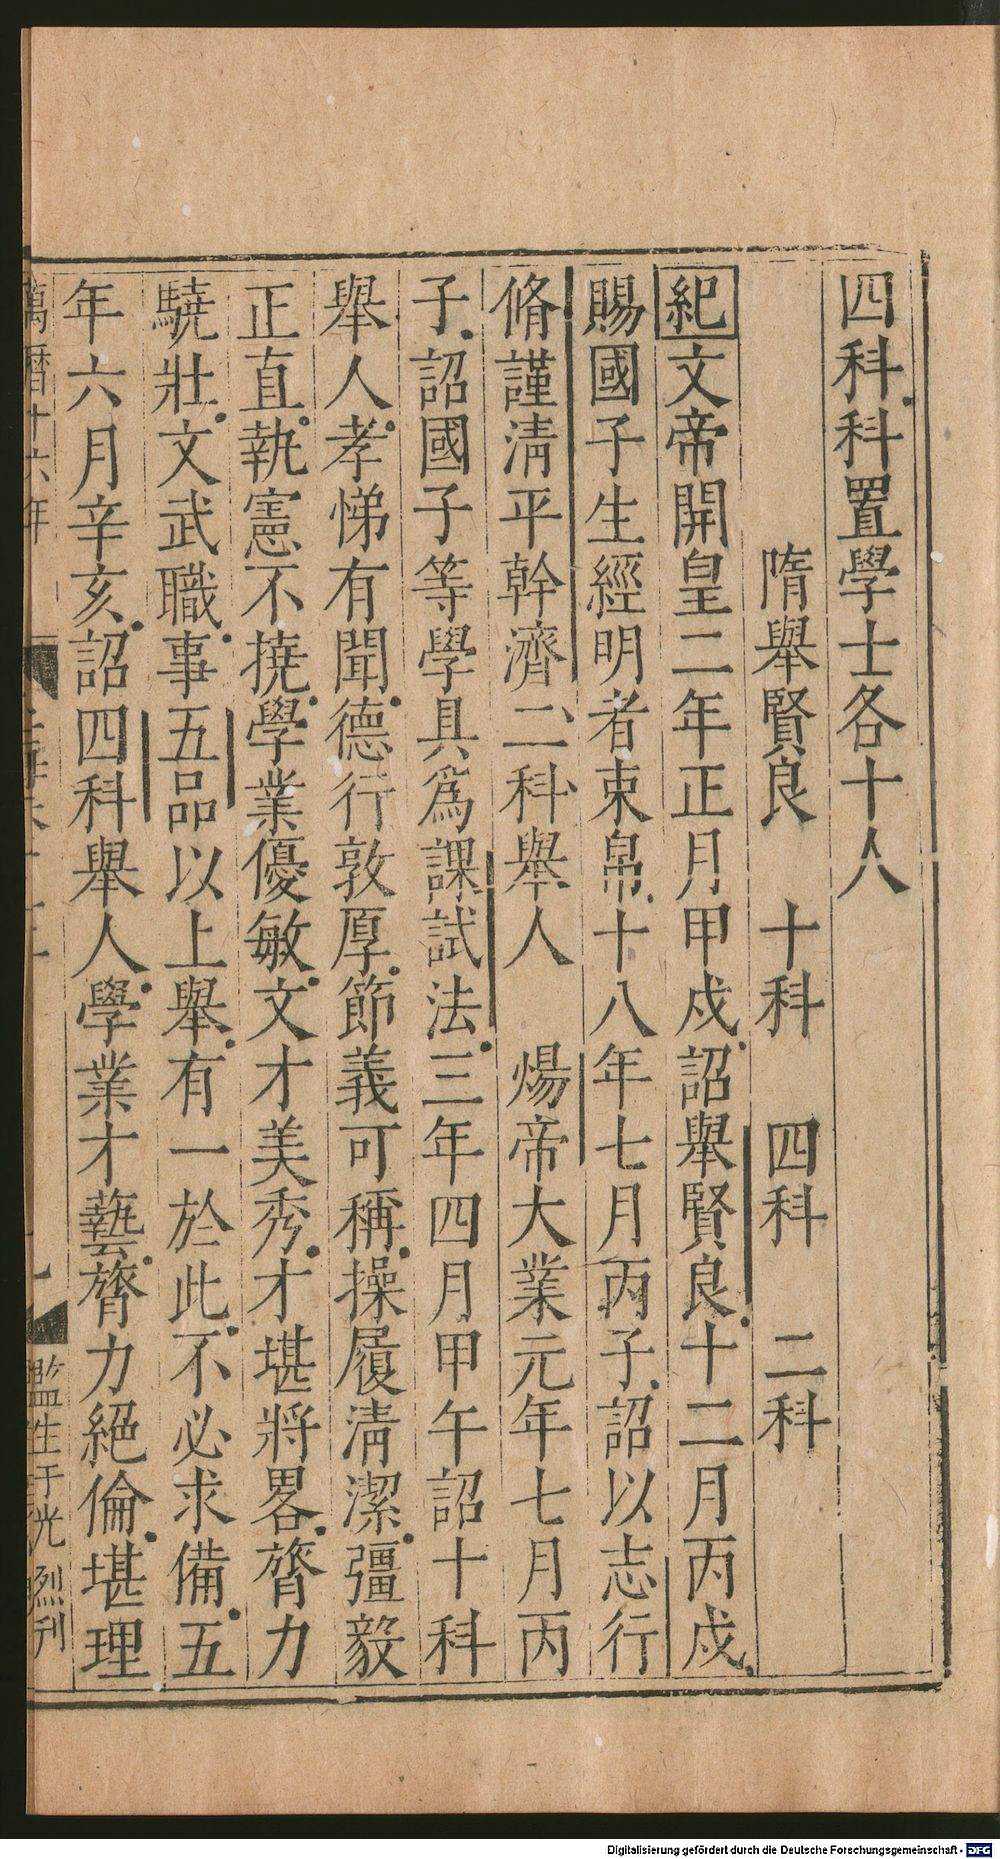 四科科置學士各十人
隋舉賢良　十科　四科　二科
紀文帝開皇二年正月甲戍詔舉賢良十二月丙戍
賜國子生經明者束帛十八年七月丙子詔以志行
脩謹淸平幹濟二科舉人　煬帝大業元年七月丙
子詔國子等學具爲課試法三年四月甲午詔十科
舉人孝悌有聞德行敦厚節義可稱操履淸潔彊毅
正直執憲不撓學業優敏文才美秀才堪將畧膂力
驍壯文武職事五品以上舉有一於此不必求備五
年六月辛亥詔四科舉人學業才藝膂力絕倫堪理
萬曆十六年
監生于光烈刋
Digitalisierung gefördert durch die Deutsche Forschungsgemeinschaft - DFG